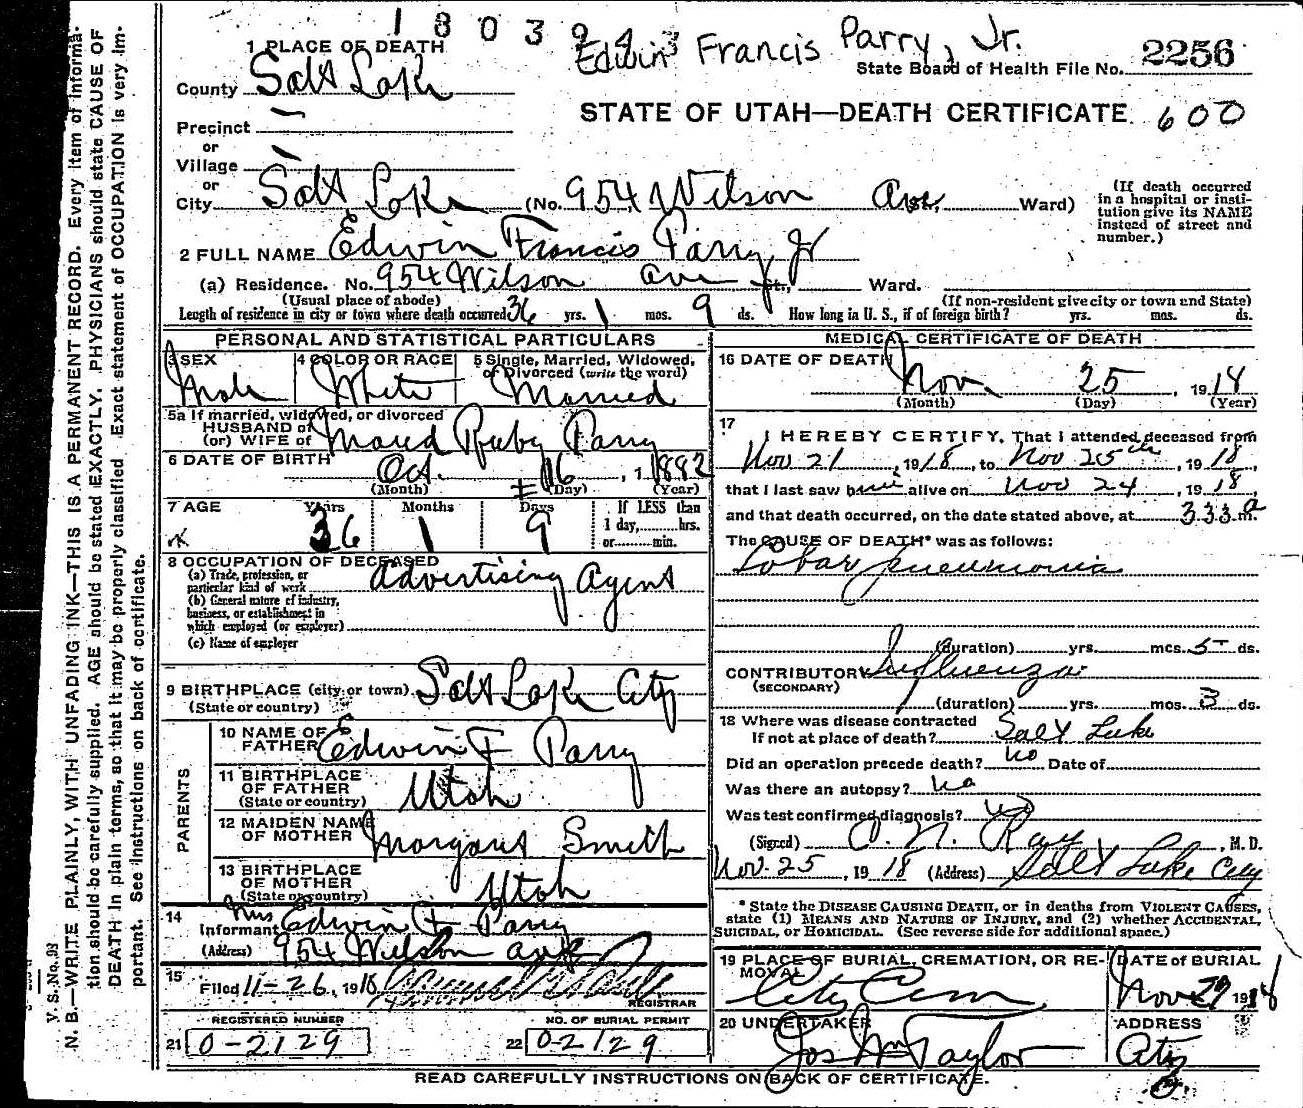 1803943
Edwin Francis Parry, Jr.
State Board of Health File No. 2256
STATE OF UTAH—DEATH CERTIFICATE. 600
1 PLACE OF DEATH
County Salt Lake
Precinct
or
Village
or
City Salt Lake (No. 954 Wilson Ave, Ward)
(If death occurred in a hospital or institution give its NAME instead of street and number.)
2 FULL NAME Edwin Francis Parry Jr
(a) Residence. No. 954 Wilson Ave St., Ward.
(Usual place of abode) (If non-resident give city or town and State)
Length of residence in city or town where death occurred 36 yrs. 1 mos. 9 ds. How long in U. S., if of foreign birth? yrs. mos. ds.
PERSONAL AND STATISTICAL PARTICULARS
3 SEX 4 COLOR OR RACE 5 Single, Married, Widowed, or Divorced (write the word)
Male White Married
5a If married, widowed, or divorced
HUSBAND of
(or) WIFE of Maud Ruby Parry
6 DATE OF BIRTH Oct. 16, 1882
(Month) (Day) (Year)
7 AGE Years Months Days If LESS than
1 day, hrs.
or min.
36 1 9
8 OCCUPATION OF DECEASED
(a) Trade, profession, or
particular kind of work Advertising Agent
(b) General nature of industry,
business, or establishment in
which employed (or employer)
(c) Name of employer
9 BIRTHPLACE (city or town) Salt Lake City
(State or country)
PARENTS
10 NAME OF
FATHER Edwin F Parry
11 BIRTHPLACE
OF FATHER Utah
(State or country)
12 MAIDEN NAME
OF MOTHER Margaret Smith
13 BIRTHPLACE
OF MOTHER Utah
(State or country)
14
Informant Mrs Edwin F Parry
(Address) 954 Wilson ave
15
Filed 11-26, 1918
REGISTRAR
REGISTERED NUMBER NO. OF BURIAL PERMIT
21 0-2129 22 02129
MEDICAL CERTIFICATE OF DEATH
16 DATE OF DEATH Nov. 25, 1918
(Month) (Day) (Year)
17
I HEREBY CERTIFY, That I attended deceased from
Nov 21, 1918, to Nov 25th, 1918,
that I last saw him alive on Nov 24, 1918
and that death occurred, on the date stated above, at 333 a m.
The CAUSE OF DEATH* was as follows:
Lobar pneumonia
(duration) yrs. mos. 5 ds.
CONTRIBUTORY Influenza
(SECONDARY)
(duration) yrs. mos. 3 ds.
18 Where was disease contracted
If not at place of death? Salt Lake
Did an operation precede death? no Date of
Was there an autopsy? No
Was test confirmed diagnosis?
(Signed) O. N. Ray, M. D.
Nov. 25, 1918 (Address) Salt Lake City
* State the DISEASE CAUSING DEATH, or in deaths from VIOLENT CAUSES,
state (1) MEANS AND NATURE OF INJURY, and (2) whether ACCIDENTAL,
SUICIDAL, or HOMICIDAL. (See reverse side for additional space.)
19 PLACE OF BURIAL, CREMATION, OR RE-
MOVAL DATE OF BURIAL
City Cem Nov 29 1918
20 UNDERTAKER ADDRESS
Jos Wm Taylor City
READ CAREFULLY INSTRUCTIONS ON BACK OF CERTIFICATE.
V. S. No. 93
N. B.—WRITE PLAINLY, WITH UNFADING INK—THIS IS A PERMANENT RECORD. Every item of informa-
tion should be carefully supplied. AGE should be stated EXACTLY. PHYSICIANS should state CAUSE OF
DEATH in plain terms, so that it may be properly classified. Exact statement of OCCUPATION is very im-
portant. See instructions on back of certificate.